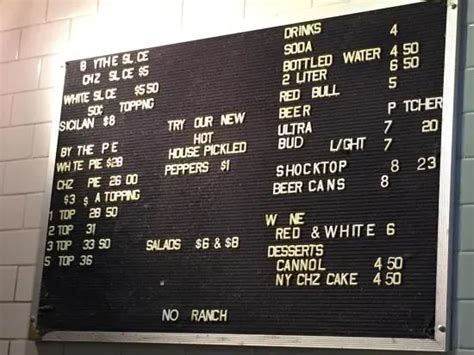 B YTHE SL CE
CHZ SL CE $5
WHITE SL CE $5 50
50¢ TOPPNG
SICILAN $8
BY THE P E
WH TE PIE $28
CHZ PIE 26 00
$3 A TOPPING
1 TOP 28 50
2 TOP 31
3 TOP 33 50
5 TOP 36
TRY OUR NEW
HOT
HOUSE PICKLED
PEPPERS $1
SALADS $6 & $8
NO RANCH
DRINKS
SODA 4
BOTTLED WATER 4 50
2 LITER 6 50
RED BULL 5
BEER P TCHER
ULTRA 7 20
BUD L/GHT 7
SHOCKTOP 8 23
BEER CANS 8
W NE
RED & WHITE 6
DESSERTS
CANNOL 4 50
NY CHZ CAKE 4 50